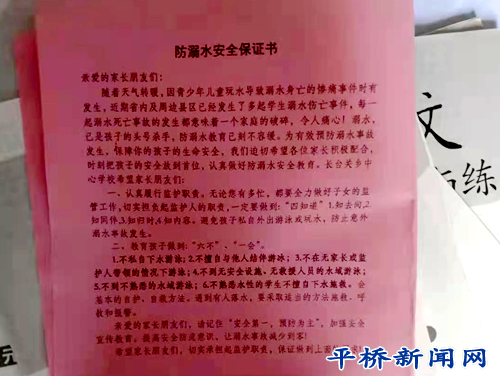 防溺水安全保证书
亲爱的家长朋友们：
随着天气转暖，因青少年儿童玩水导致溺水身亡的惨痛事件时有
发生，近期省内及周边县区已经发生了多起学生溺水伤亡事件，每一
起溺水死亡事故的发生都意味着一个家庭的破碎，令人痛心！溺水，
已是孩子的头号杀手，防溺水教育已刻不容缓。为有效预防溺水事故
发生，保障你的孩子的生命安全，我们迫切希望各位家长积极配合，
时刻把孩子的安全放到首位，认真做好防溺水安全教育。长台关乡中
心学校希望家长朋友们：
一、认真履行监护职责。无论您有多忙，都要全力做好子女的监
管工作，切实担负起监护人的职责，一定要做到："四知道"1.知去向;2.
知同伴;3.知归时;4.知内容。避免孩子私自外出游泳或玩水，防止意外
溺水事故发生。
二、教育孩子做到："六不"、"一会"。
1.不私自下水游泳;2.不擅自与他人结伴游泳;3.不在无家长或监
护人带领的情况下游泳;4.不到无安全设施、无救援人员的水域游泳;
5.不到不熟悉的水域游泳;6.不熟悉水性的学生不擅自下水施救。会
基本的自护、自救方法。遇到有人落水，要采取适当的方法施救、呼
救和报警。
亲爱的家长朋友们，请记住"安全第一，预防为主"，加强安全
宣传教育，提高安全防范意识、让溺水事故减少到零！
希望家长朋友们，切实承担起监护职责，保证做到上面的要求！
文
练
平桥新闻网